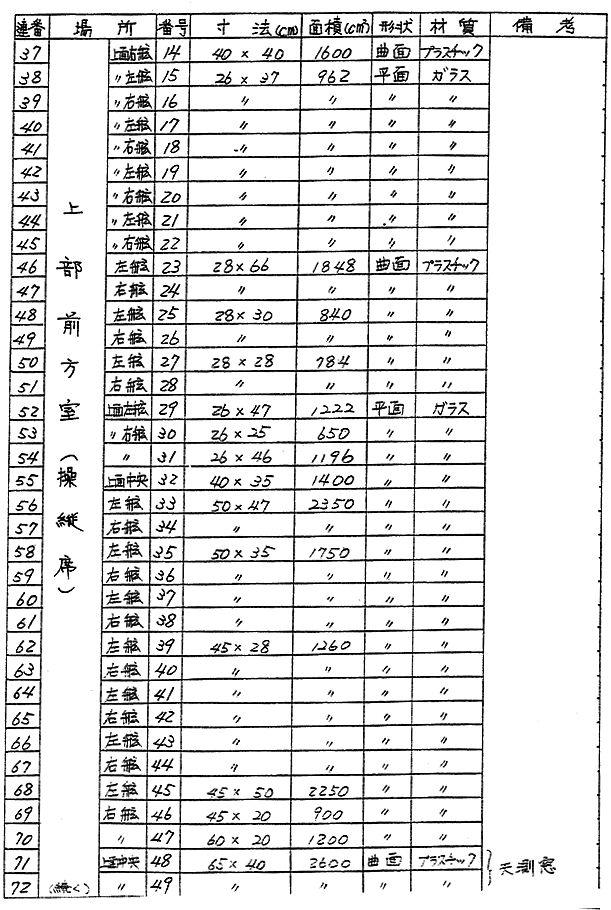 連番 場所 番号 寸法(cm) 面積(cm²) 形状 材質 備考
37 上面右舷 14 40×40 1600 曲面 プラスチック
38 〃左舷 15 26×37 962 平面 ガラス
39 〃右舷 16 〃 〃 〃 〃
40 〃左舷 17 〃 〃 〃 〃
41 〃右舷 18 〃 〃 〃 〃
42 〃左舷 19 〃 〃 〃 〃
43 〃右舷 20 〃 〃 〃 〃
44 〃左舷 21 〃 〃 〃 〃
45 〃右舷 22 〃 〃 〃 〃
46 左舷 23 28×66 1848 曲面 プラスチック
47 右舷 24 〃 〃 〃 〃
48 左舷 25 28×30 840 〃 〃
49 右舷 26 〃 〃 〃 〃
50 左舷 27 28×28 784 〃 〃
51 右舷 28 〃 〃 〃 〃
52 上面左舷 29 26×47 1222 平面 ガラス
53 〃右舷 30 26×25 650 〃 〃
54 〃 31 26×46 1196 〃 〃
55 上面中央 32 40×35 1400 〃 〃
56 左舷 33 50×47 2350 〃 〃
57 右舷 34 〃 〃 〃 〃
58 左舷 35 50×35 1750 〃 〃
59 右舷 36 〃 〃 〃 〃
60 左舷 37 〃 〃 〃 〃
61 右舷 38 〃 〃 〃 〃
62 左舷 39 45×28 1260 〃 〃
63 右舷 40 〃 〃 〃 〃
64 左舷 41 〃 〃 〃 〃
65 右舷 42 〃 〃 〃 〃
66 左舷 43 〃 〃 〃 〃
67 右舷 44 〃 〃 〃 〃
68 左舷 45 45×50 2250 〃 〃
69 右舷 46 45×20 900 〃 〃
70 〃 47 60×20 1200 〃 〃
71 上面中央 48 65×40 2600 曲面 プラスチック
72 (続く) 〃 49 〃 〃 〃 〃
上部前方室(操縦席)
天測窓